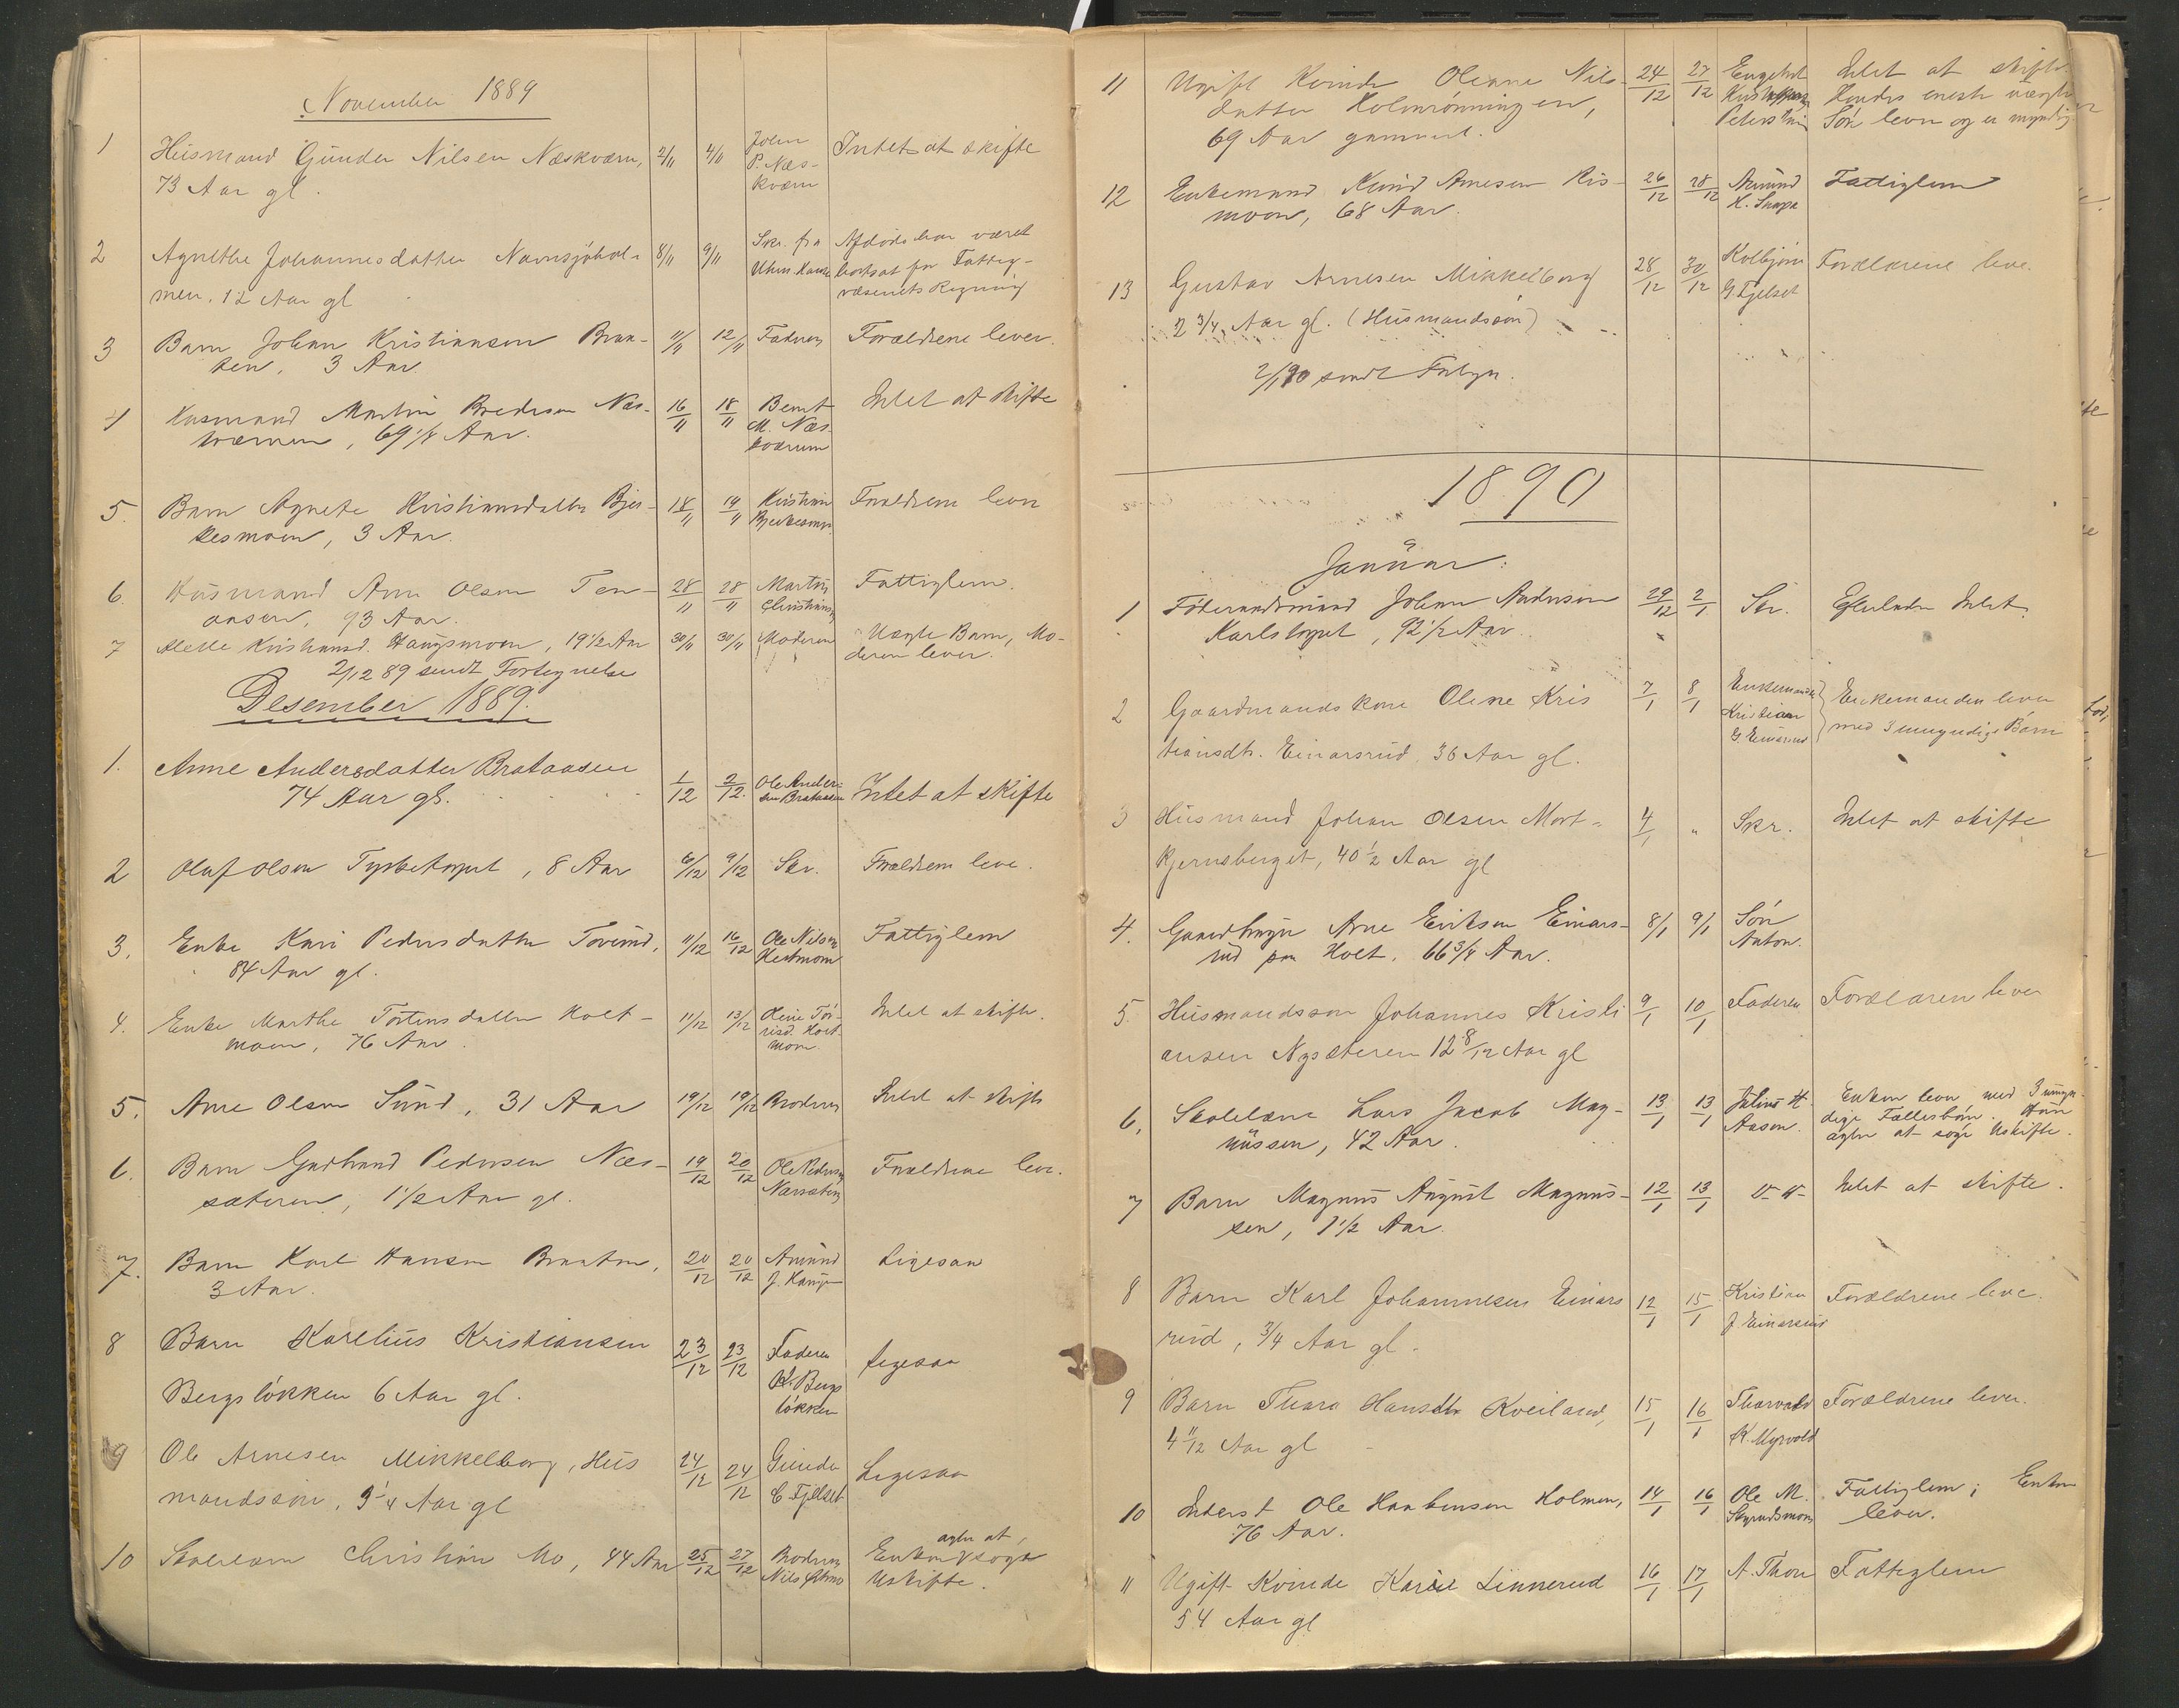 November 1889
1 Husmand Gunder Nilsen Næskværn, 2/11 4/11 John P. Næs- Intet at skifte
73 Aar gl. kværn
2 Agnethe Johannesdatter Navnsjöhol- 8/11 9/11 Skr. fra Afdöde har været
men. 12 Aar gl bortsat for Fattig-
væsenets Regning
3 Barn Johan Kristiansen Braa- 11/11 12/11 Faderen Forældrene lever.
ten, 3 Aar
4 Husmand Martin Pedersen Næs- 16/11 18/11 Bernt Intet at skifte
kværnen, 69 1/4 Aar. M. Næs-
kværnen
5. Barn Agnete Kristiansdatter Bjer- 18/11 19/11 Kristian Forældrene lever
kesmoen, 3 Aar. Bjerkesmoen
6. Husmand Arne Olsen Ten- 28/11 28/11 Martin Fattiglem.
aasen, 93 Aar. Christiansen
7 Kristiansd. Haugsmoen, 19 1/2 Aar 30/11 30/11 Moderen Uægte Barn, Mo-
deren lever.
2/12 89 sendt Fortegnelse
Desember 1889.
1. Anne Andersdatter Brataasen 1/12 2/12. Ole Ander- Intet at skifte
74 Aar gl. sen Brataasen
2 Olaf Olsen Tysketorpet, 8 Aar 6/12 9/12 Skr. Forældrene leve.
3. Enke Kari Pedersdatter 11/12 16/12 Ole Nilsen Fattiglem
84 Aar gl.
4. Enke Marthe Torstensdatter Holt- 11/12 13/12 Intet at skifte.
moen, 76 Aar. Holt-
moen.
5. Arne Olsen Sund, 31 Aar 19/12 19/12 Broderen Intet at skifte
6. Barn Gudbrand Pedersen Næs- 19/12 20/12 Ole Pedersen Forældrene leve.
sæteren, 1 1/2 Aar gl. Næssæteren
7. Barn Karl Hansen Braaten, 20/12 20/12 Amund Ligesaa
3 Aar.
8 Barn Karelius Kristiansen 23/12 23/12 Faderen Ligesaa
Bergslökken 6 Aar gl. K. Bergs
lökken
9 Ole Arnesen Mikkelborg, Hus 24/12 24/12 Gunder Ligesaa
mandssön, 9 1/4 Aar gl C. Fjelset
10 Skolelærer Christian Mo, 44 Aar 25/12 27/12 Broderen agter at
Nils Enken søge
Uskifte.
11 Ugift Kvinde Oleane Nils- 24/12 27/12 Engebret Intet at skifte.
datter Holmrönningen, Hendes eneste uægte
69 Aar gammel. Sön lever og er myndig
12 Enkemand Knud Arnesen Ris- 26/12 28/12 Amund Fattiglem
moen, 68 Aar.
13 Gustav Arnesen Mikkelborg 28/12 30/12 Kolbjörn Forældrene leve.
2 3/4 Aar gl. (Husmandssön) G. Fjelset
2/1 90 sendt
1890
Januar.
1 Föderaadsmand Johan Andersen 29/12 2/1 Skr. Efterlader Intet.
Karlstorpet, 92 1/2 Aar.
2 Gaardmandskone Olene Kris 7/1 8/1 Enkemanden Enkemanden lever
tiansdtr. Einarsrud, 36 Aar gl. Kristian G. Einarsrud med 3 umyndige Börn
3 Husmand Johan Olsen Mort- 4/1 " Skr. Intet at skifte
kjernsberget, 40 1/2 Aar gl
4. Gaardbruger Arne Eriksen Einars- 8/1 9/1 Sön
rud paa Holt. 66 3/4 Aar. Anton.
5. Husmandssøn Johannes Kristi 9/1 10/1 Faderen Forældrene lever
ansen Nysæteren 12 8/12 Aar gl
6. Skolelærer Lars Jacob Mag- 13/1 13/1 Julius H. Enken lever med 3 umyn-
nussen, 42 Aar. Aasen. dige Fællesbörn. Hun
agter at søge Uskifte.
7 Barn Magnus August Magnus- 12/1 13/1 Intet at skifte.
sen, 1 1/2 Aar.
8 Barn Karl Johannesen Einars 12/1 15/1 Kristian Forældrene leve.
rud, 3/4 Aar gl. J. Einarsrud
9 Barn Thara Hansdtr Kveiland, 15/1 16/1 Tharvald Forældrene lever.
4 11/12 Aar gl K. Myrvold
10 Inderst Ole Haakensen Holmen, 14/1 16/1 Ole M. Fattiglem; Enken
76 Aar. Skyrudsmoen lever.
11 Ugift Kvinde Karie Linnerud 16/1 17/1 A. Thon Fattiglem
54 Aar gl